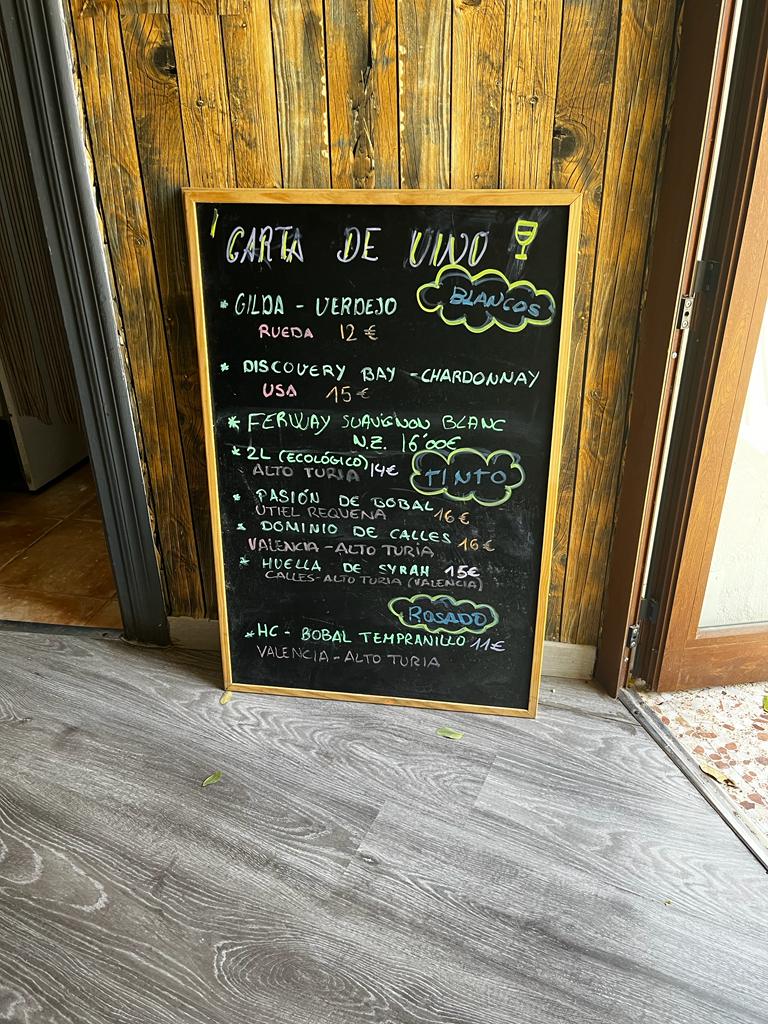 CARTA DE VINO
BLANCOS
* GILDA - VERDEJO
RUEDA 12 €
* DISCOVERY BAY - CHARDONNAY
USA 15 €
* FERWAY SUAVIGNON BLANC
N.Z. 16'00€
TINTO
* 2L (ECOLÓGICO) 14€
ALTO TURIA
* PASIÓN DE BOBAL
UTIEL REQUENA 16 €
* DOMINIO DE CALLES 16 €
VALENCIA - ALTO TURIA
* HUELLA DE SYRAH 15€
CALLES - ALTO TURIA (VALENCIA)
ROSADO
* HC - BOBAL TEMPRANILLO 11€
VALENCIA - ALTO TURIA